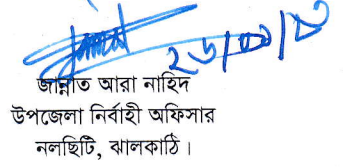 জান্নাত আরা নাহিদ
উপজেলা নির্বাহী অফিসার
নলছিটি, ঝালকাঠি।